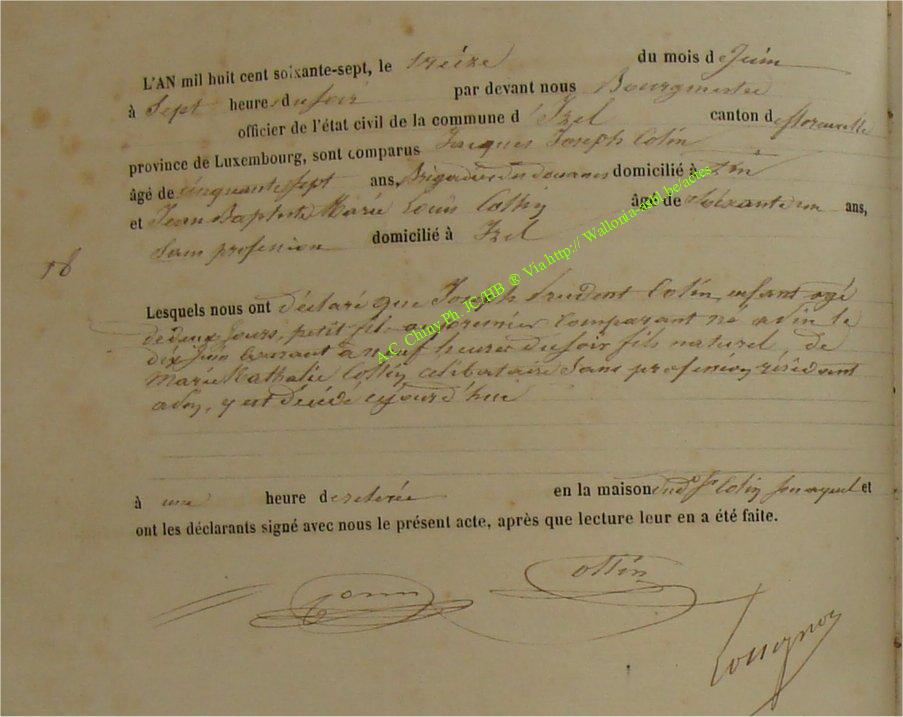 L'AN mil huit cent soixante-sept, le treize du mois de Juin
à Sept heures du soir par devant nous Bourgmestre
officier de l'état civil de la commune d' Izel canton de Florenville
province de Luxembourg, sont comparus Jacques Joseph Colin
âgé de cinquante sept ans, Brigadier des douanes domicilié à
et Jean Baptiste Marie Louis âgé de Soixante un ans,
Sans profession domicilié à Izel
18
Lesquels nous ont déclaré que Joseph Prudent Colin, enfant agé
de deux jours, petit fils au premier Comparant né a le
dix Juin courant à neuf heures du soir fils naturel, de
Marie Nathalie Collin, célibataire Sans profession, résidant
y est décédé aujourd'hui
à une heure de relevée en la maison du Colin et
ont les déclarants signé avec nous le présent acte, après que lecture leur en a été faite.
Collin
A.C. Chiny Ph. JC/HB ® Via http:// Wallonia-asbl.be/actes